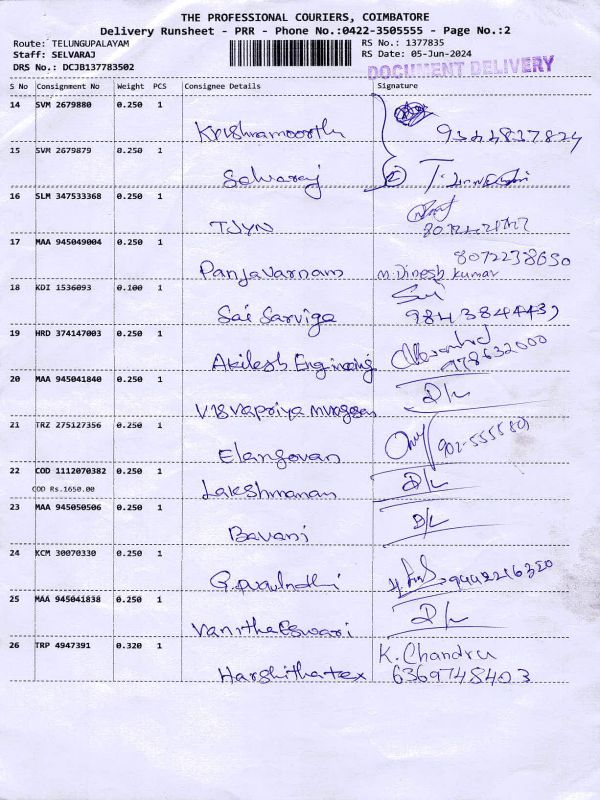 THE PROFESSIONAL COURIERS, COIMBATORE
Delivery Runsheet - PRR - Phone No.:0422-3505555 - Page No.:2
Route: TELUNGUPALAYAM RS No.: 1377835
Staff: SELVARAJ RS Date: 05-Jun-2024
DRS No.: DCJB137783502 DOCUMENT DELIVERY
S No Consignment No Weight PCS Consignee Details Signature
14 SVM 2679880 0.250 1
Krishnamoorthy
15 SVM 2679879 0.250 1
Selvaraj
16 SLM 347533368 0.250 1
TJYN
17 MAA 945049004 0.250 1 8072238650
Panjavarnam M. Dinesh kumar
18 KDI 1536093 0.100 1
Sai Sarviga
19 HRD 374147003 0.250 1
Akilesh Engineering 978632000
20 MAA 945041840 0.250 1
D/L
21 TRZ 275127356 0.250 1
Elangovan
22 COD 1112070382 0.250 1
COD Rs.1650.00 D/L
Lakshmanan
23 MAA 945050506 0.250 1
D/L
Bavani
24 KCM 30070330 0.250 1
9442216320
25 MAA 945041838 0.250 1
D/L
Vanitha Eswari
26 TRP 4947391 0.320 1 K. Chandru
Harshitha tex 6369748403